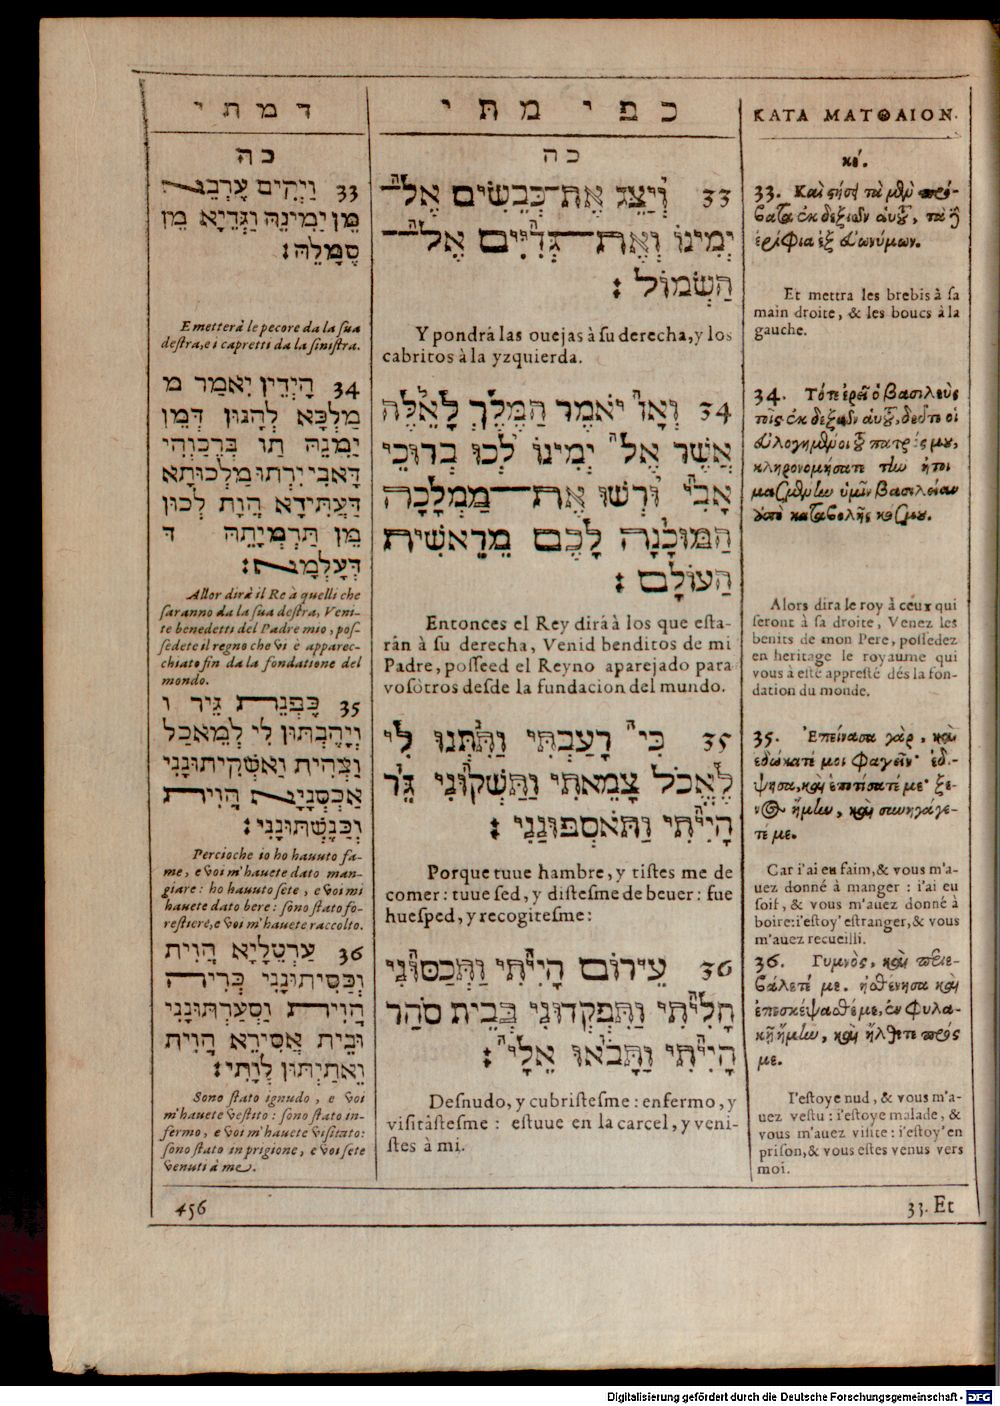 ד מ ת י
כ ה
33 וַיְקִים עָרְבֵנָא
מֵן יַמִינֵהּ וַגְדַיָא מֵן
סֶמָלֵהּ׃
E metterà le pecore da la sua
destra, e i capretti da la sinistra.
34 הָיְדֵין יִאמַר מ
מַלְכָּא לְהָנוּן דְּמֵן
יַמִנֵהּ תַו בְּרְכַוְהִי
דָאבִי יִרְתוּ מַלְכּוּתָא
דַּעֲתִידָא הֲוָת לְכוּן
מֵן תַּרְמְיָתֵהּ דּ
דְּעָלְמָא׃
Allor dirà il Re à quelli che
saranno da la sua destra, Veni-
te benedetti del Padre mio, pos-
sedete il regno che vi è apparec-
chiato fin da la fondatione del
mondo.
35 כָּפְנֵת גֵּיר ו
וִיַהֲבְתּוּן לִי לְמֵאכַל
וַצְהִית וַאשְׁקִיתוּנָנִי
אַכְסְנָיָא הֲוִית
וְכְנַשְׁתּוּנָנִי׃
Percioche io ho hauuto fa-
me, e voi m'hauete dato man-
giare: ho hauuto sete, e voi mi
hauete dato bere: sono stato fo-
restiere, e voi m'hauete raccolto.
36 עַרְטֵלָיָא הֲוִית
וְכַסִיתוּנָנִי כְּרִיהָ
הֲוִית וְסְעַרְתּוּנָנִי
וּבֵית אֲסִירֵא הֲוִית
וֵאתַיְתּוּן לְוָתִי׃
Sono stato ignudo, e voi
m'hauete vestito: sono stato in-
fermo, e voi m'hauete visitato:
sono stato in prigione, e voi sete
venuti à me.
456
כ פ י מ ת י
כ ה
33 וְיַצֵּג אֶת־כְּבָשִׂים אֶל־
יְמִינוֹ וְאֶת־גְּדִיִּים אֶל־
הַשְּׂמוֹל׃
Y pondrá las ouejas à su derecha, y los
cabritos à la yzquierda.
34 וְאָז יֹאמֶר הַמֶּלֶךְ לָאֵלֶּה
אֲשֶׁר אֶל יְמִינוֹ לְכוּ בְרוּכֵי
אָבִי וּרְשׁוּ אֶת־מַמְלָכָה
הַמּוּכָנָה לָכֶם מֵרֵאשִׁית
הָעוֹלָם׃
Entonces el Rey dirá à los que esta-
rán à su derecha, Venid benditos de mi
Padre, posseed el Reyno aparejado para
vosòtros desde la fundacion del mundo.
35 כִּי רָעַבְתִּי וַתִּתְּנוּ לִי
לֶאֱכֹל צָמֵאתִי וַתַּשְׁקוּנִי גֵּר
הָיִיתִי וַתֹּאסְפוּנַנִי׃
Porque tuue hambre, y distes me de
comer: tuue sed, y distesme de beuer: fue
huesped, y recogitesme:
36 עֵירוֹם הָיִיתִי וַתְּכַסּוּנִי
חָלִיתִי וַתִּפְקְדוּנִי בְּבֵית סֹהַר
הָיִיתִי וַתָּבֹאוּ אֵלָי׃
Desnudo, y cubristesme: enfermo, y
visitàstesme: estuue en la carcel, y veni-
stes à mi.
ΚΑΤΑ ΜΑΤΘΑΙΟΝ.
κέ.
33. Καὶ στήσῃ τὰ μὲν πρό-
βατα ἐκ δεξιῶν αὐτοῦ, τὰ δὲ
ἐρίφια ἐξ εὐωνύμων.
Et mettra les brebis à sa
main droite, & les boucs à la
gauche.
34. Τότε ἐρεῖ ὁ βασιλεὺς
τοῖς ἐκ δεξιῶν αὐτοῦ, δεῦτε οἱ
εὐλογημένοι τοῦ πατρός μου,
κληρονομήσατε τὴν ἡτοι
μασμένην ὑμῖν βασιλείαν
ἀπὸ καταβολῆς κόσμου.
Alors dira le roy à ceux qui
seront à sa droite, Venez les
benits de mon Pere, possedez
en heritage le royaume qui
vous à esté appresté dés la fon-
dation du monde.
35. Ἐπείνασα γὰρ, καὶ
ἐδώκατέ μοι φαγεῖν· ἐδί-
ψησα, καὶ ἐποτίσατέ με· ξέ-
νος ἤμην, καὶ συνηγάγε-
τέ με.
Car i'ai eu faim, & vous m'a-
uez donné à manger: i'ai eu
soif, & vous m'auez donné à
boire: i'estoy' estranger, & vous
m'auez recueilli.
36. Γυμνὸς, καὶ περιε-
βάλετέ με. ἠσθένησα καὶ
ἐπεσκέψασθέ με, ἐν φυλα-
κῇ ἤμην, καὶ ἤλθετε πρός
με.
I'estoye nud, & vous m'a-
uez vestu: i'estoye malade, &
vous m'auez visité: i'estoy' en
prison, & vous estes venus vers
moi.
33. Et
Digitalisierung gefördert durch die Deutsche Forschungsgemeinschaft - DFG